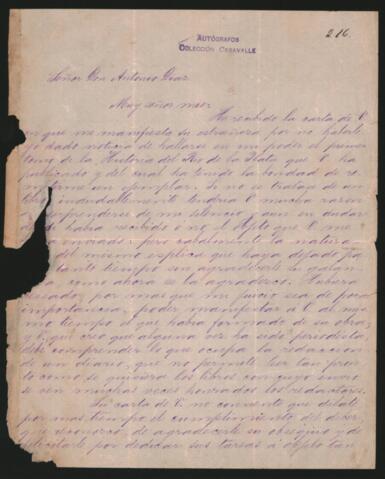 AUTÓGRAFOS
COLECCIÓN CASAVALLE
216.
Señor Don Antonio Diaz
Muy señor mio:
He recibido la carta de V.
en que me manifiesta su estrañeza por no haberle
yo dado noticia de hallarse en mi poder el primer
tomo de la Historia del Rio de la Plata que V. ha
publicado y del cual ha tenido la bondad de re-
mitirme un ejemplar. Si no se tratase de un
libro, indudablemente tendria V. mucha razon
sorprenderse de mi silencio y aun en dudar
de si habia recibido ó no el objeto que V. me
enviado; pero cabalmente la natura-
del mismo esplica que haya dejado pa-
tanto tiempo sin agradecerle su galan-
como ahora se la agradezco. Hubiera
deseado, por mas que mi juicio sea de poca
importancia, poder manifestar á V. al mis-
mo tiempo el que habia formado de su obra;
y V., que creo que alguna vez ha sido periodista,
debe comprender lo que ocupa la redaccion
de un diario, que no permite leer tan pron-
to como se quisiera los libros con cuyo envio
se ven muchas veces honrados los redactores.
Su carta de V. no consiente que dilate
por mas tiempo el cumplimiento del deber
que reconozco de agradecerle su obsequio y de
felicitarle por dedicar sus tareas á objeto tan